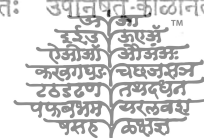 तः उपनिषत्-काळानत
TM
अ आ
इ ई उ ऊ ए ॲ
ऐ ओ ऑ औ अं अः
क ख ग घ ङ च छ ज झ ञ
ट ठ ड ढ ण त थ द ध न
प फ ब भ म य र ल व श
ष स ह ळ क्ष ज्ञ